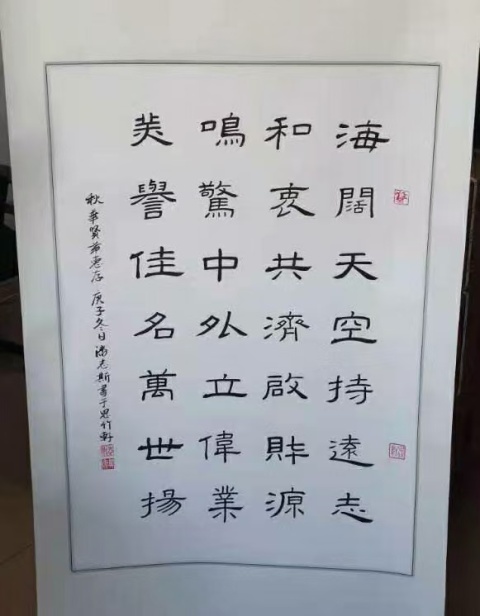 海闊天空持遠志
和衷共濟啟財源
鳴驚中外立偉業
美譽佳名萬世揚
秋華賢弟惠存 庚子冬日志斯書于思竹軒